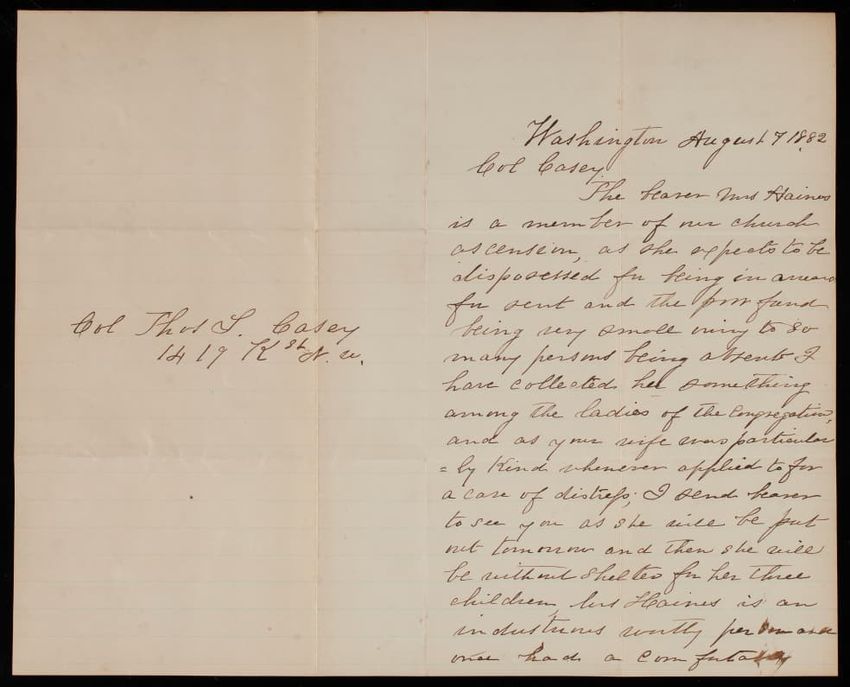 Col Thos L. Casey
1419 K St N. W.
Washington August 7 1882
Col Casey
The bearer Mrs Haines
is a member of our church
ascension, as she expects to be
disposessed for being in arrears
for rent and the poor fund
being very small owing to so
many persons being absent I
have collected her something
among the ladies of the Congregation,
and as your wife was particular
=ly Kind whenever applied to for
a case of distress; I send bearer
to see you as she will be put
out tomorrow and then she will
be without shelter for her three
children, Mrs Haines is an
industrious worthy person and
once had a comfortable